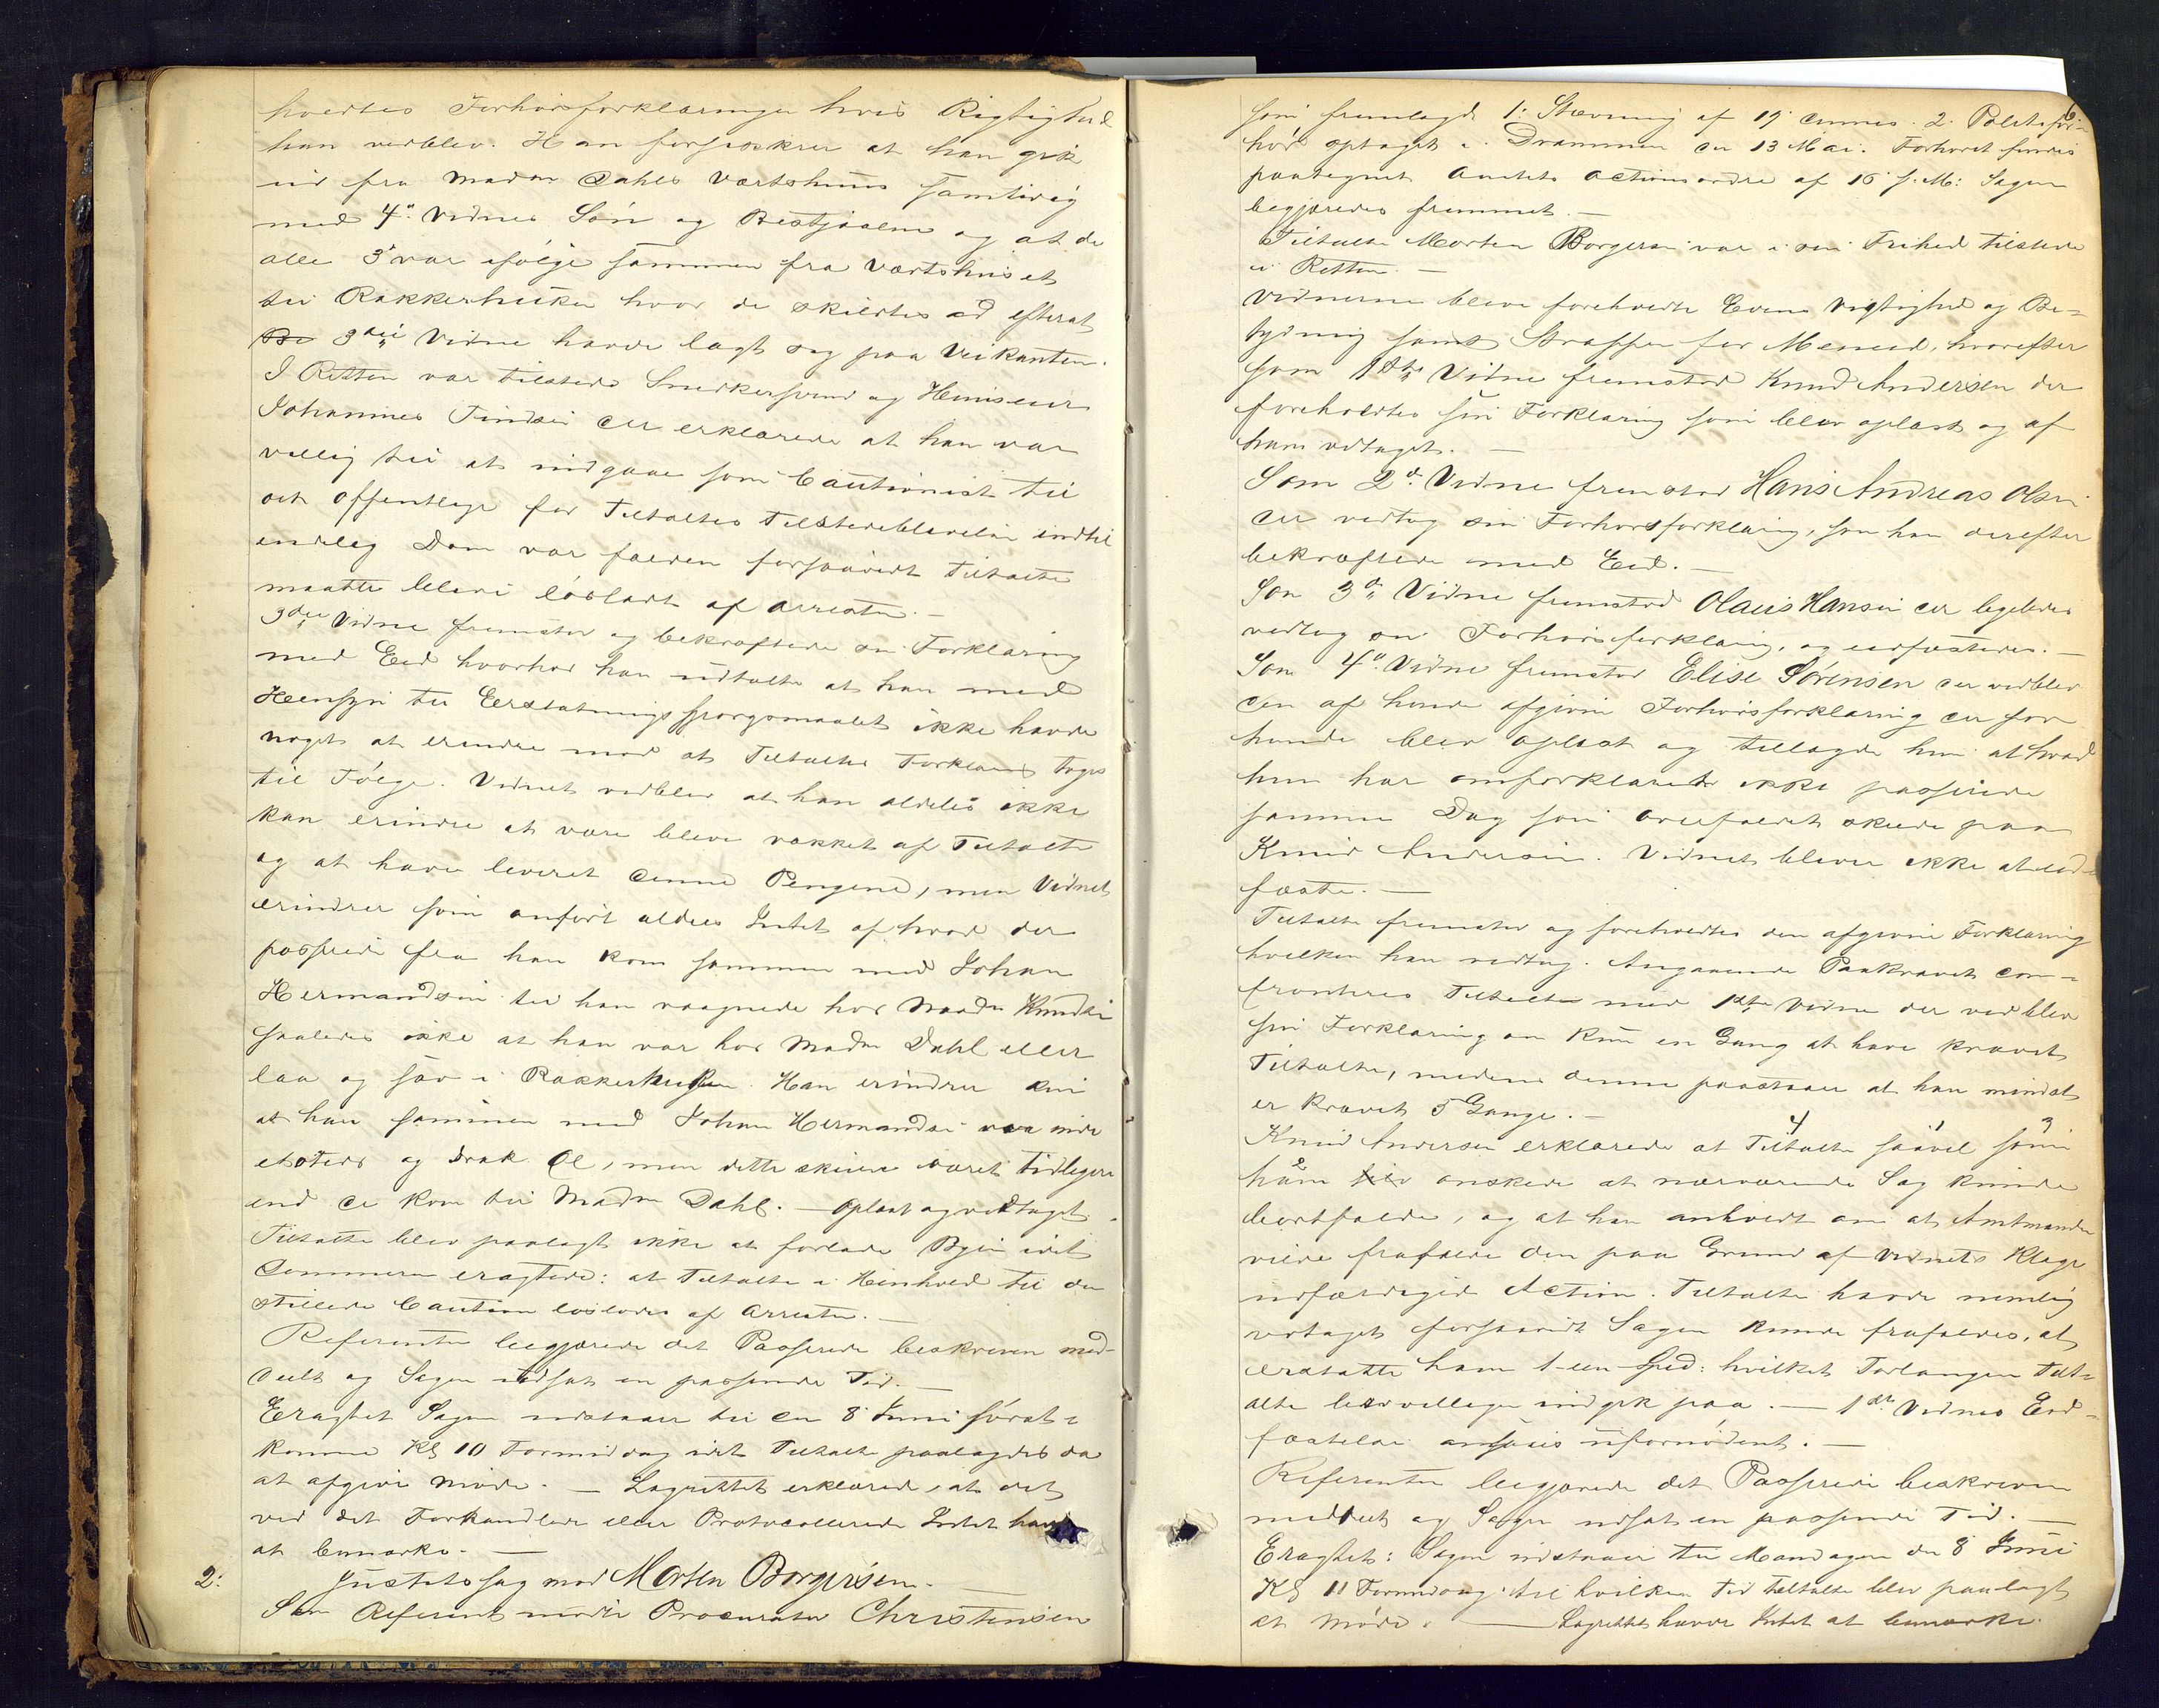 hvertes Forhørsforklaringer hvis Rigtighed
han vedblev. Han forsikrer at han gik
ud fra Madm Dahls Værtshuus samtidig
med 4de Vidnes Søn og Bestjaalne og at de
alle 3 var ifølge sammen fra Værtshuset
til Rakkerhuken hvor de skiltes ad efterat
3die Vidne havde lagt sig paa Veikanten.
I Retten var tilstede Snedkersvend og Huuseier
Johannes Tindsen der erklærede at han var
villig til at indgaae som Cautionist til
det offentlige for Tiltaltes Tilstedeblivelse indtil
endelig Dom var falden forsaavidt Tiltalte
maatte blive løsladt af Arresten. —
3die Vidne fremstod og bekræftede sin Forklaring
med Eed hvorhos han udtalte at han med
Hensyn til Erstatningsspørgsmaalet ikke havde
noget at erindre mod at Tiltaltes Forklaring toges
til Følge. Vidnet vedblev at han aldeles ikke
kan erindre at være bleven vækket af Tiltalte
og at have leveret denne Pengene, men Vidnet
erindrer som anført aldeles Intet af hvad der
passerede fra han kom sammen med Johan
Hermandsen til han vaagnede hos Madm Knudsen
saaledes ikke at han var hos Madm Dahl eller
laa og sov i Rakkerhuken. Han erindrer kun
at han sammen med Johan Hermandsen var inde
etsteds og drak Øl, men dette skulde været tidligere
end de kom til Madm Dahl. — Oplæst og vedtaget.
Tiltalte blev paalagt ikke at forlade Byen idet
Dommeren eragtede: at Tiltalte i Henhold til den
stillede Caution løslades af Arresten. —
Referenten begjærede det Passerede beskreven med-
deelt og Sagen udsat en passende Tid. —
Eragtet Sagen udstaaer til den 8 Juni først-
komme Kl 10 Formiddag idet Tiltalte paalagdes da
at afgive Møde. — Lagrettet erklærede, at det
ved det Forhandlede eller Protocollerede Intet havde
at bemærke. —
2: Justitssag mod Morten Borgersen. —
Som Referent mødte Procurator Christensen
6
som fremlagde 1: Stævning af 19 dennes. 2. Politifor-
hør optaget i Drammen den 13 Mai. Forhøret findes
paategnet Amtets Actionsordre af 16 s. M: Sagen
begjæredes fremmet. —
Tiltalte Morten Borgersen var i sin Frihed tilstede
i Retten. —
Vidnerne bleve foreholdte Edens Vigtighed og Be-
tydning samt Straffen for Meneed, hvorefter
som 1ste Vidne fremstod Knud Andersen der
foreholdtes sin Forklaring som blev oplæst og af
ham vedtaget. —
Som 2det Vidne fremstod Hans Andreas Olsen
der vedtog sin Forhørsforklaring, som han derefter
bekræftede med Eed. —
Som 3die Vidne fremstod Olaus Hansen der ligeledes
vedtog sin Forhørsforklaring, og eedfæstedes. —
Som 4de Vidne fremstod Elise Sørensen der vedblev
den af hende afgivne Forhørsforklaring der for
hende blev oplæst og tillagde hun at hvad
hun har omforklaret ikke passerede
samme Dag som Overfaldet skede paa
Knud Andersen. Vidnet bliver ikke at eed-
fæste. —
Tiltalte fremstod og foreholdtes den afgivne Forklaring
hvilken han vedtog. Angaaende Paakravet con-
fronteres Tiltalte med 1ste Vidne der vedblev
sin Forklaring om kun en Gang at have krævet
Tiltalte, medens denne paastaaer at han mindst
er krævet 5 Gange. —
Knud Andersen erklærede at Tiltalte saavel som
han ønskede at nærværende Sag kunde
bortfalde, og at han anholdt om at Amtmanden
vilde frafalde den paa Grund af Vidnets Klage
udfærdigede Action. Tiltalte havde nemlig
vedtaget forsaavidt Sagen kunde frafaldes, at
erstatte ham 1-een-Spd: hvilket Forlangen Tilt-
alte beredvilligen indgik paa. — 1ste Vidnes Eed-
fæstelse ansaaes ufornødent. —
Referenten begjærede det Passerede beskreven
meddeelt og Sagen udsat en passende Tid. —
Eragtet: Sagen udstaaer til Mandagen den 8 Juni
Kl 11 Formiddag til hvilken Tid Tiltalte blev paalagt
at møde. — Lagrettet havde Intet at bemærke.